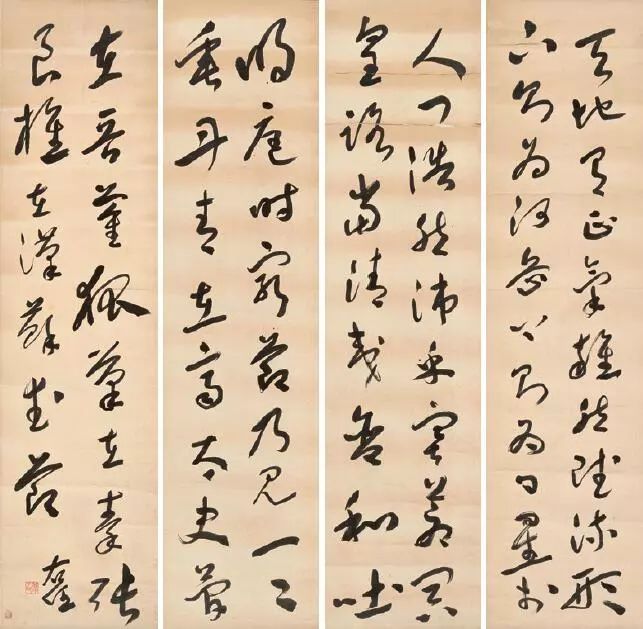 天地有正氣雜然賦流形
下則為河嶽上則為日星於
人曰浩然沛乎塞蒼冥
皇路當清夷含和吐
明庭時窮節乃見一一
垂丹青在齊太史簡
在晉董狐筆在秦張
良椎在漢蘇武節